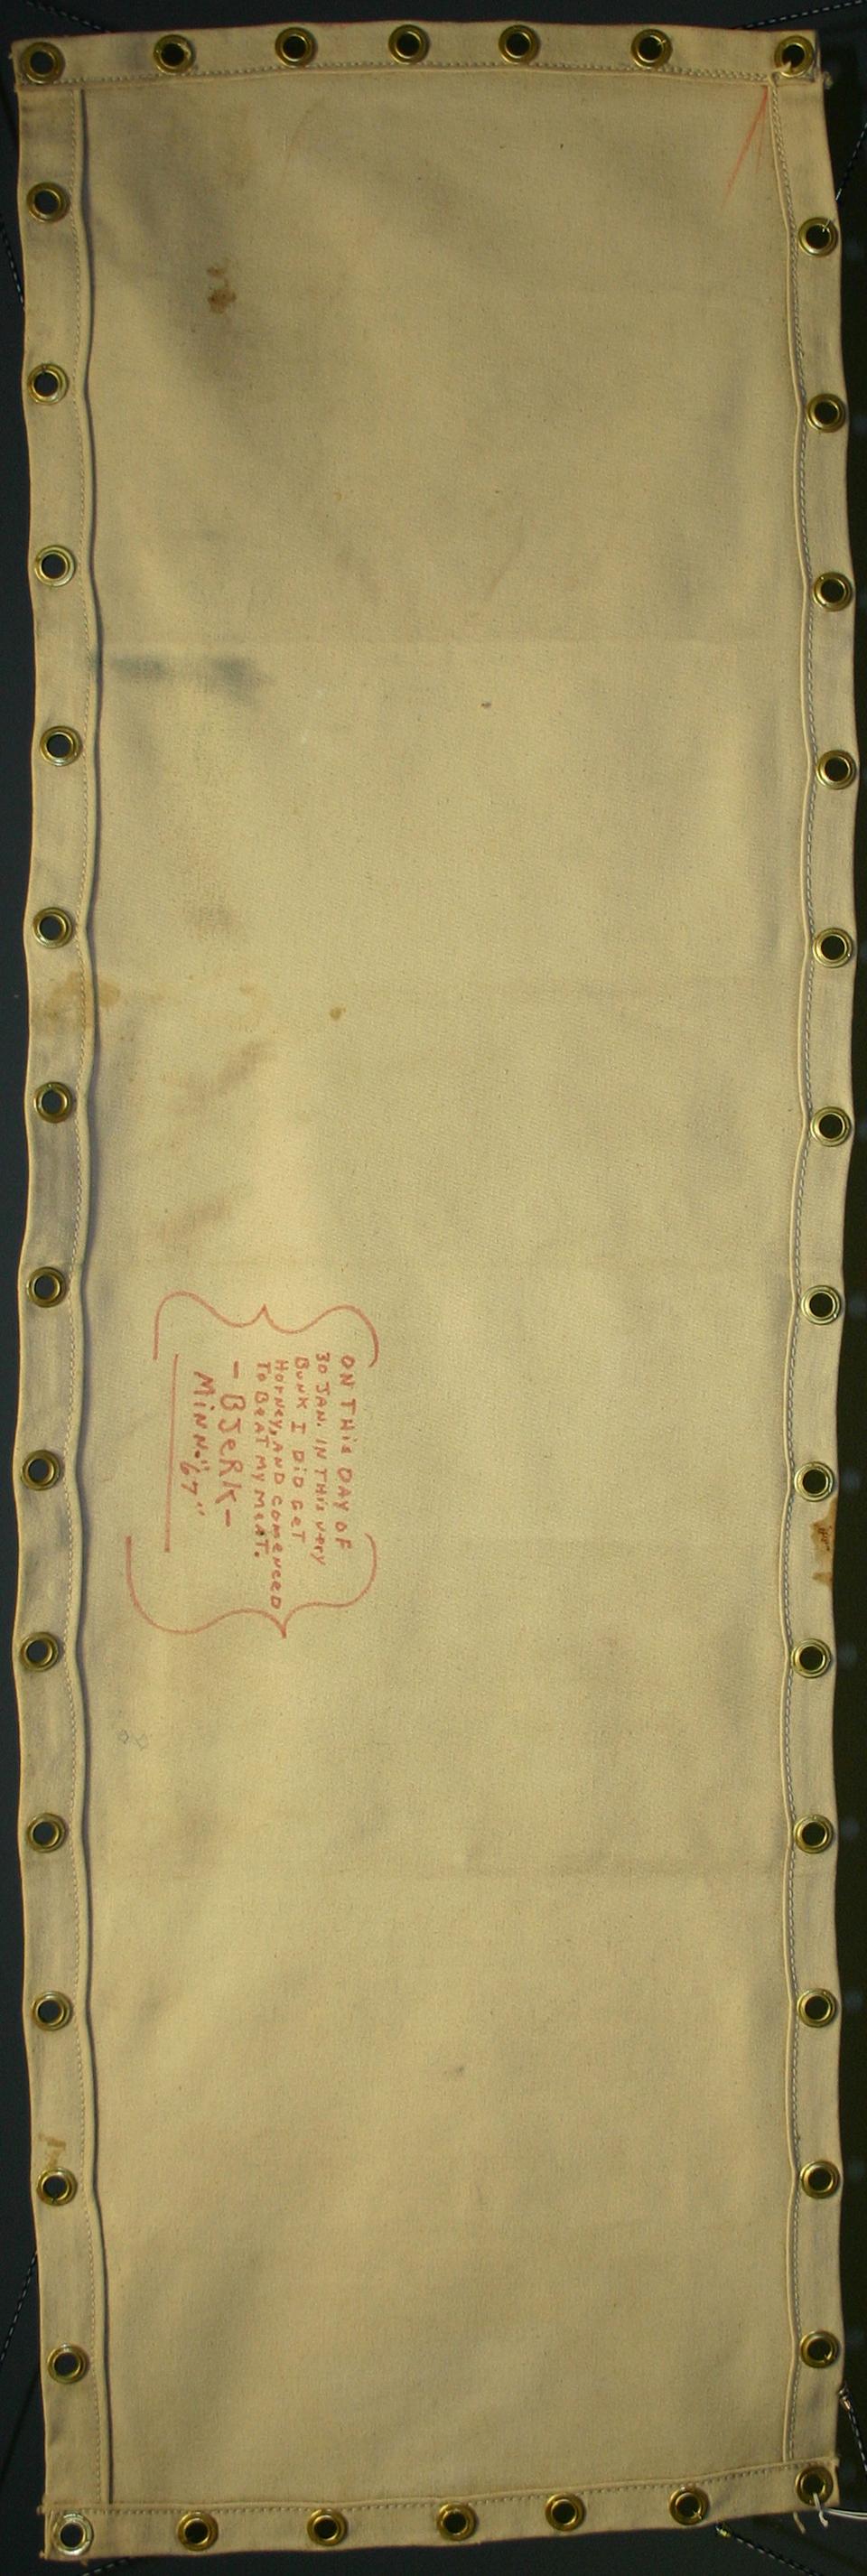 ON THiS DAY OF
30 JAN. IN THiS very
BunK I DiD GeT
HOrNey, AND COmeNCeD
To BeAT MY MeAT.
- BJeRK -
MiNN. "67"